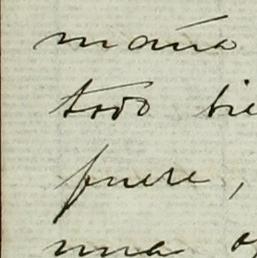 maña
todo bie
fuere,
una